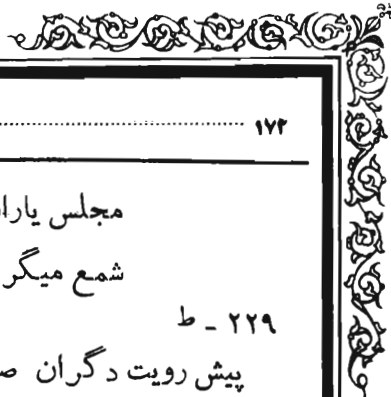 ۱۷۲
مجلس
شمع میگر
۲۲۹ - ط
پیش رویت دگران